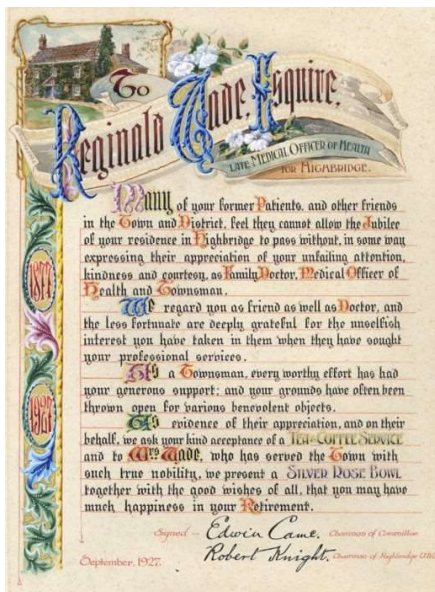 To
Reginald Wade, Esquire,
LATE MEDICAL OFFICER OF HEALTH
FOR HIGHBRIDGE.
Many of your former Patients, and other friends
in the Town and District, feel they cannot allow the Jubilee
of your residence in Highbridge to pass without, in some way
expressing their appreciation of your unfailing attention,
kindness and courtesy, as Family Doctor, Medical Officer of
Health and Townsman.
We regard you as friend as well as Doctor, and
the less fortunate are deeply grateful for the unselfish
interest you have taken in them when they have sought
your professional services.
As a Townsman, every worthy effort has had
your generous support; and your grounds have often been
thrown open for various benevolent objects.
As evidence of their appreciation, and on their
behalf, we ask your kind acceptance of a TEA & COFFEE SERVICE
and to Mrs Wade, who has served the Town with
such true nobility, we present a SILVER ROSE BOWL
together with the good wishes of all, that you may have
much happiness in your Retirement.
Signed — Edwin Came. Chairman of Committee
Robert Knight. Chairman of Highbridge U.D.C.
September, 1927.
1877
1927